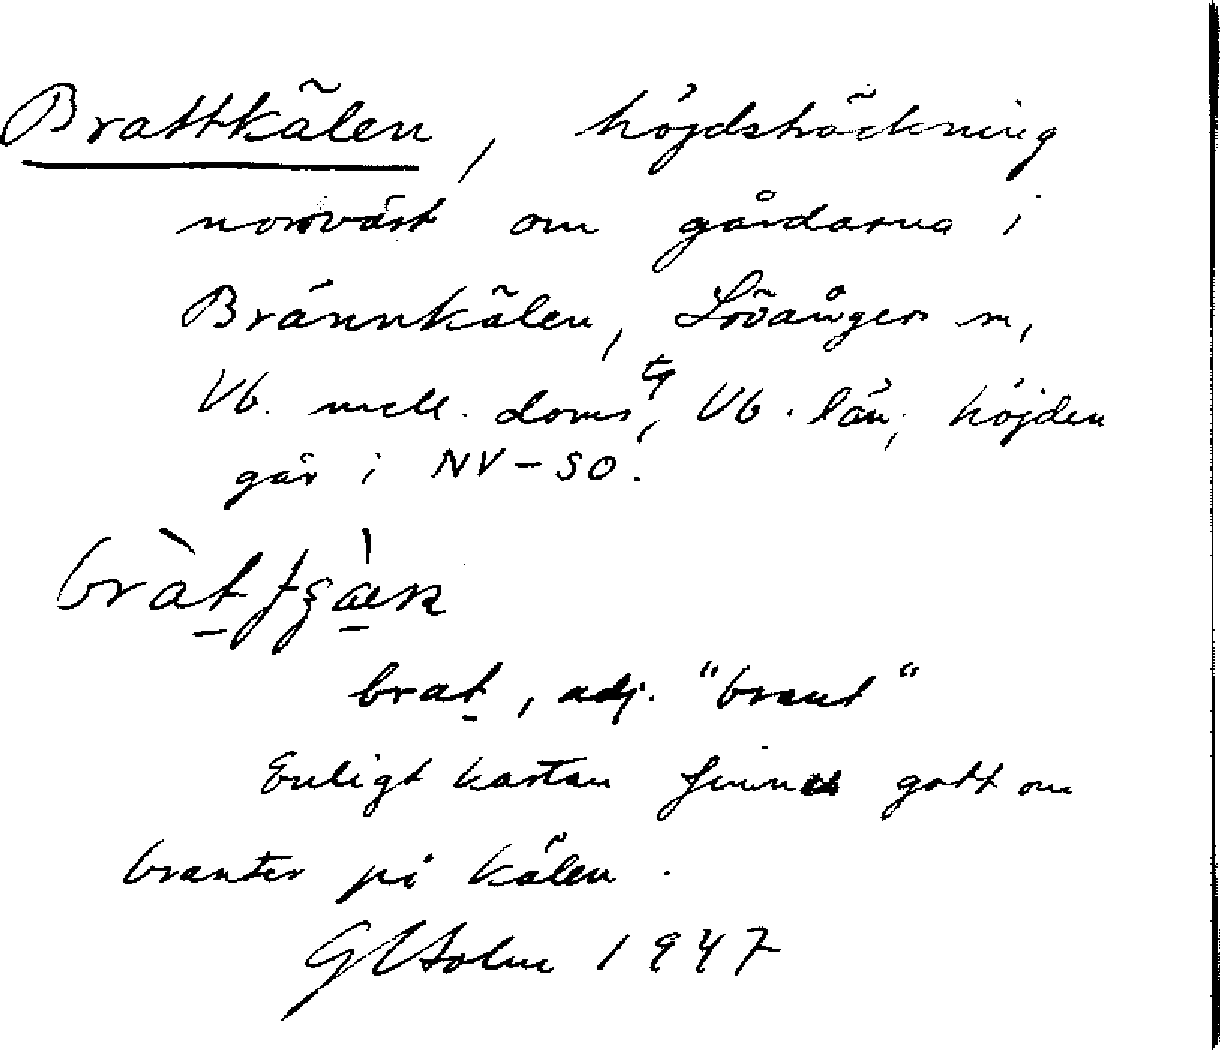 Brattkälen, höjdsträckning
norrväst om gårdarna i
Brännkälen, Lövångers sn,
Vb. mell. doms tg, Vb. län; höjden
går i NV-SO.
brat, adj. "brant"
Enligt kartan finns gott om
branter på kälen.
G Holm 1947